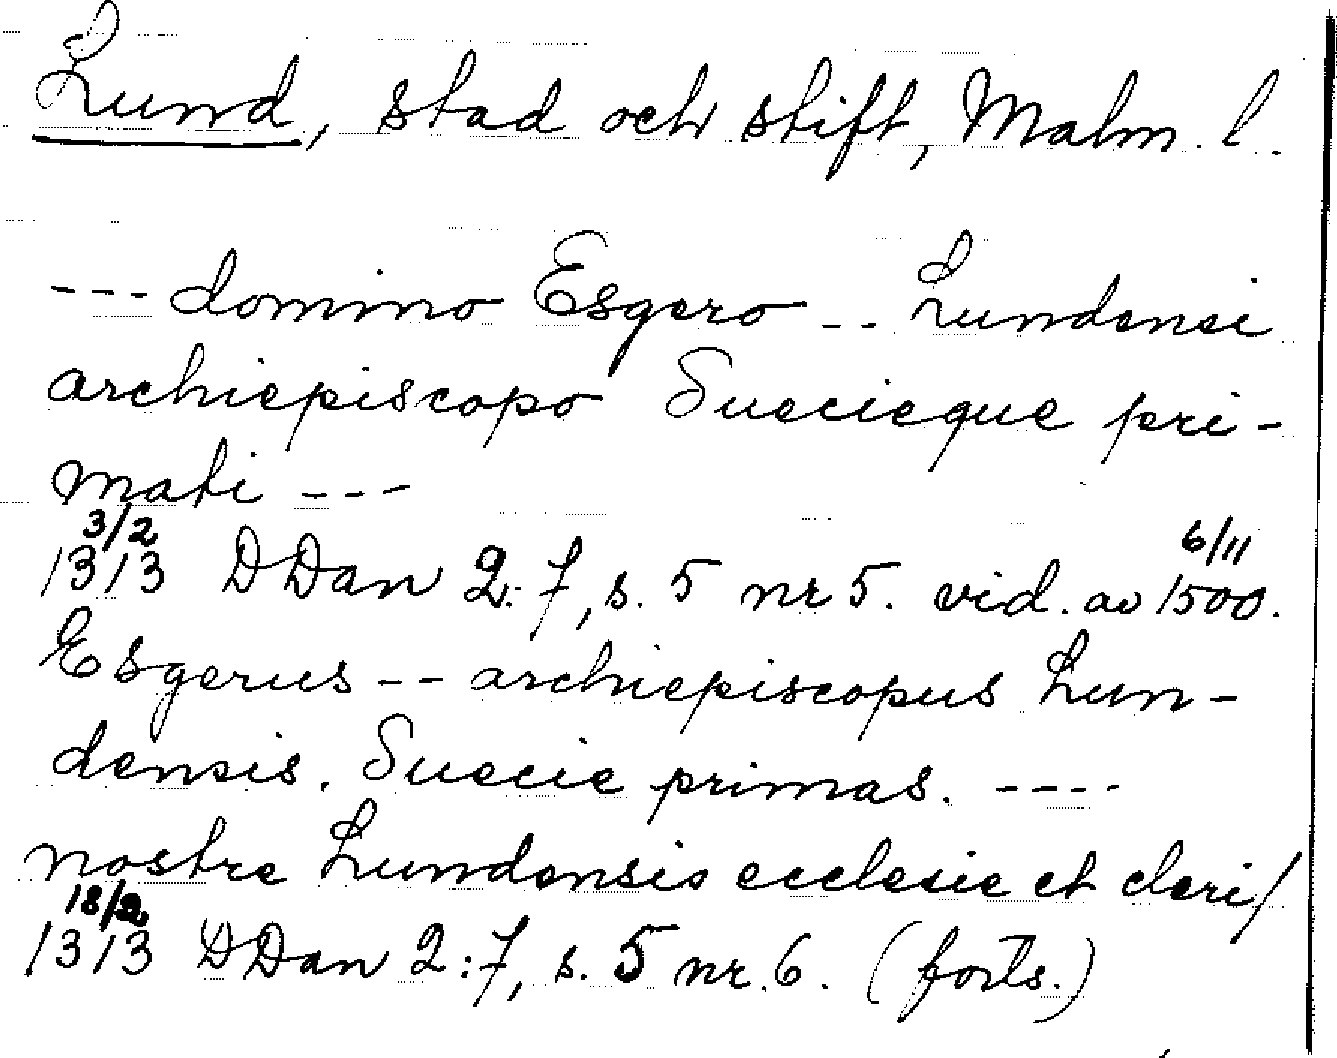 Lund, stad och stift, Malm. l.
--- domino Esgero -- Lundensi
archiepiscopo Suecieque pri-
mati ---
3/2 6/11
1313 DDan 2:7, s. 5 nr 5. vid. av 1500.
Esgerus -- archiepiscopus Lun-
densis. Suecie primas. ----
nostre Lundensis ecclesie et cleri/
18/2
1313 DDan 2:7, s. 5 nr. 6. (forts.)